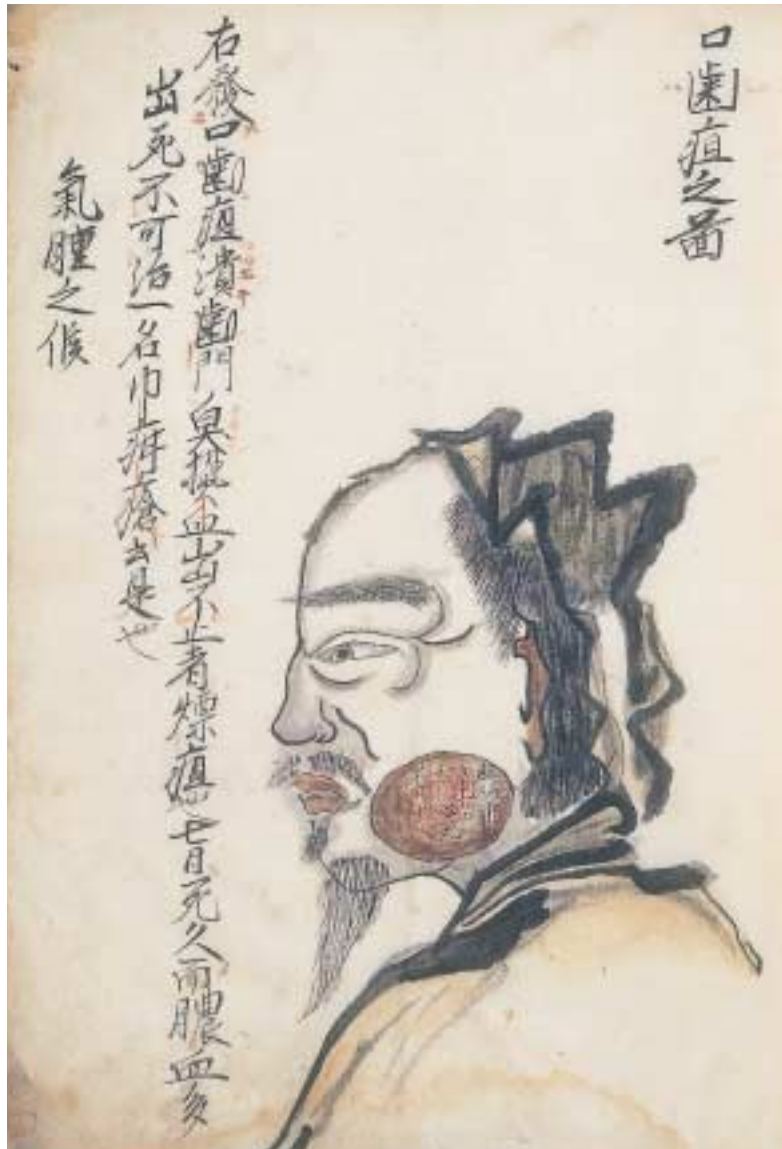 口歯疽之啚
右發口歯疽潰歯門臭採血出不止者燥疽七日死久而膿血多
出死不可治一名巾疳瘡云是也
氣腫之候